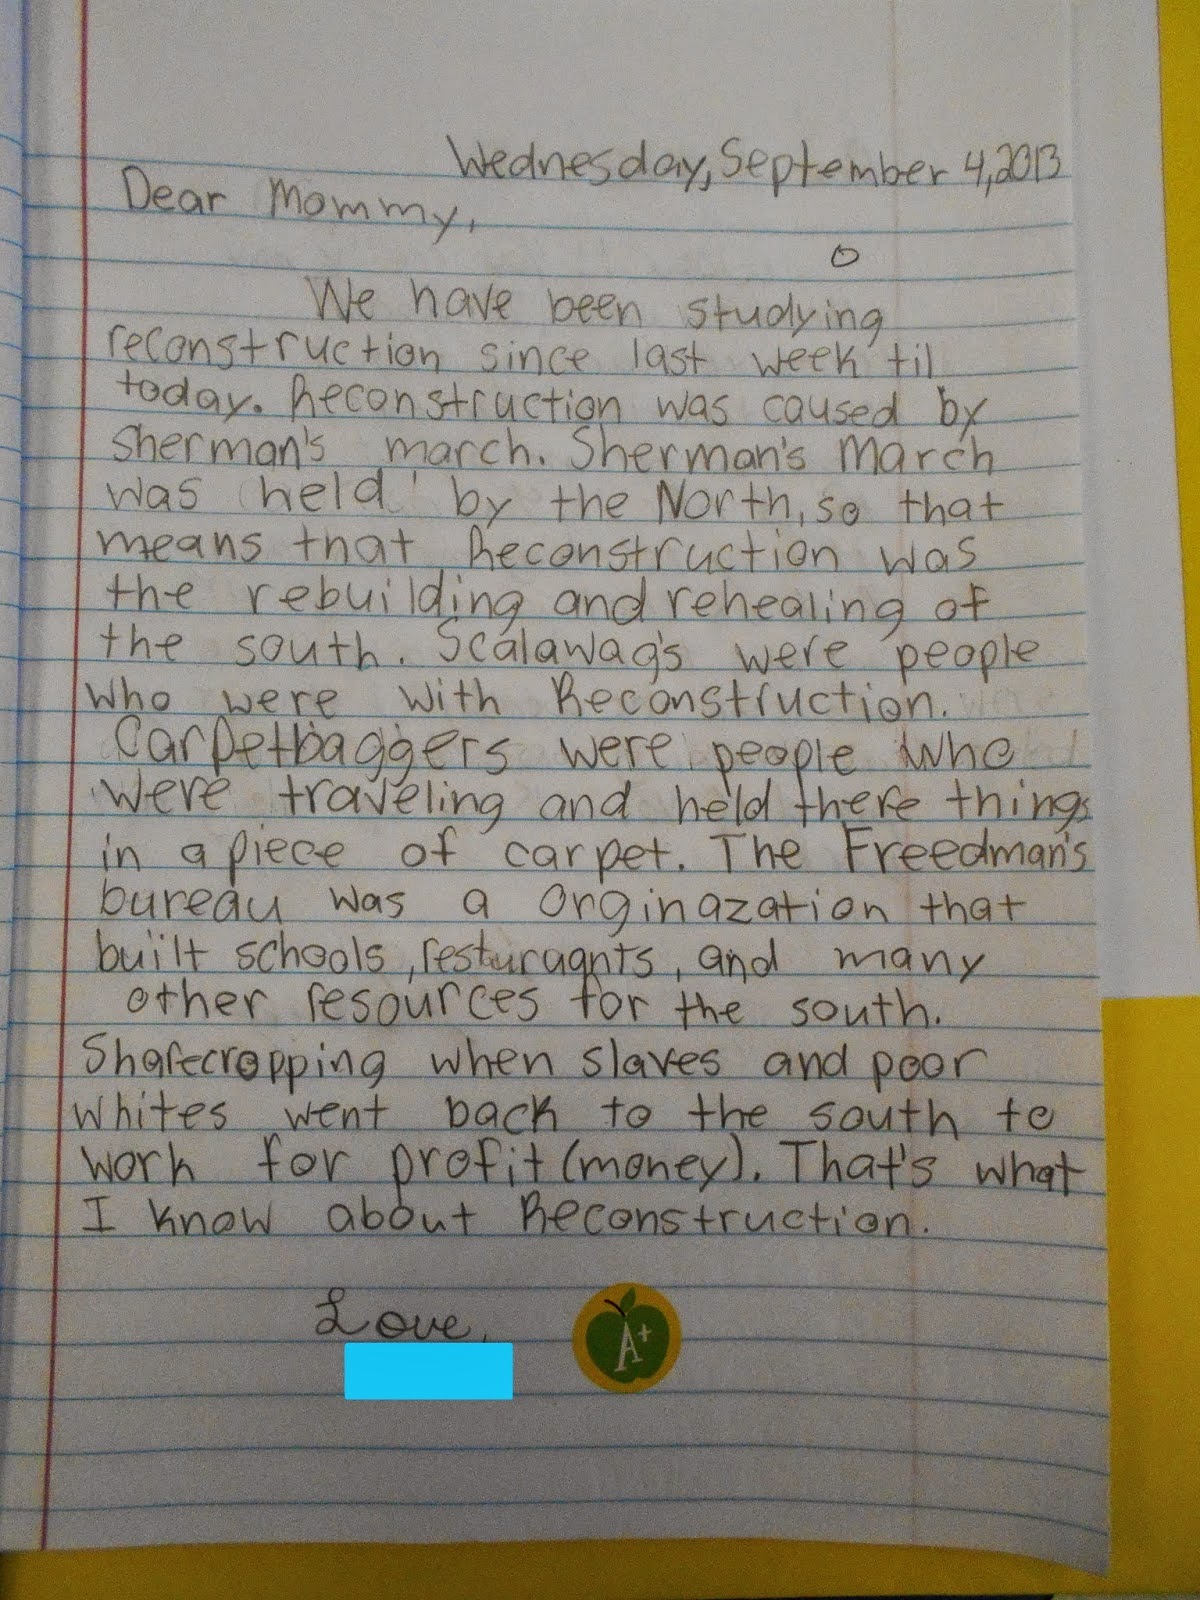 Wednesday, September 4, 2013
Dear Mommy,
We have been studying
reconstruction since last week til
today. Reconstruction was caused by
Sherman's march. Sherman's March
was held by the North, so that
means that Reconstruction was
the rebuilding and rehealing of
the south. Scalawag's were people
who were with Reconstruction.
Carpetbaggers were people who
were traveling and held there things
in a piece of carpet. The Freedman's
bureau was a Orginazation that
built schools, resturagnts, and many
other resources for the south.
Sharecropping when slaves and poor
whites went back to the south to
work for profit (money). That's what
I know about Reconstruction.
Love,
A+